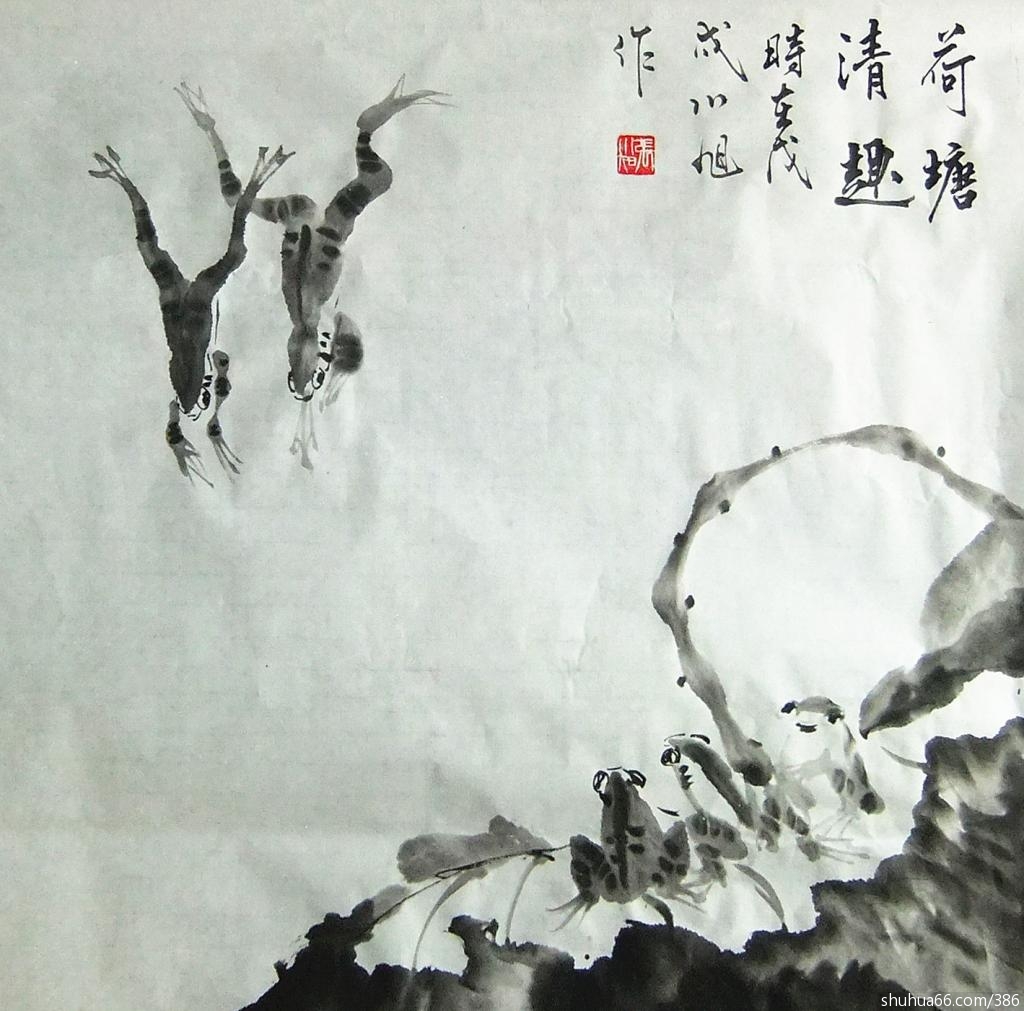 荷塘
清趣
時在戊
戌小旭
作
張
shuhua66.com/386